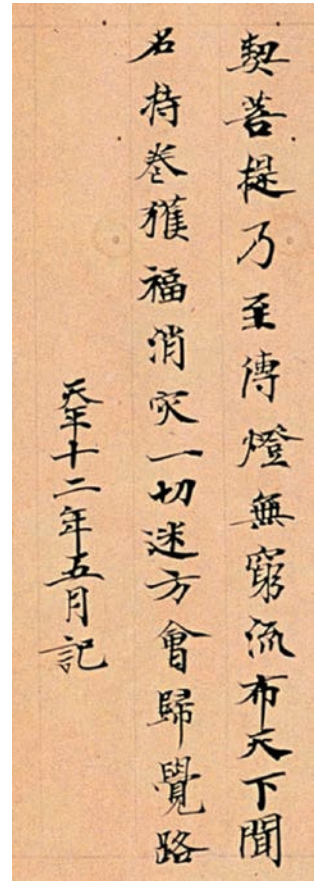 契菩提乃至傳燈無窮流布天下聞
名持卷獲福消灾一切迷方會歸覺路
天平十二年五月記